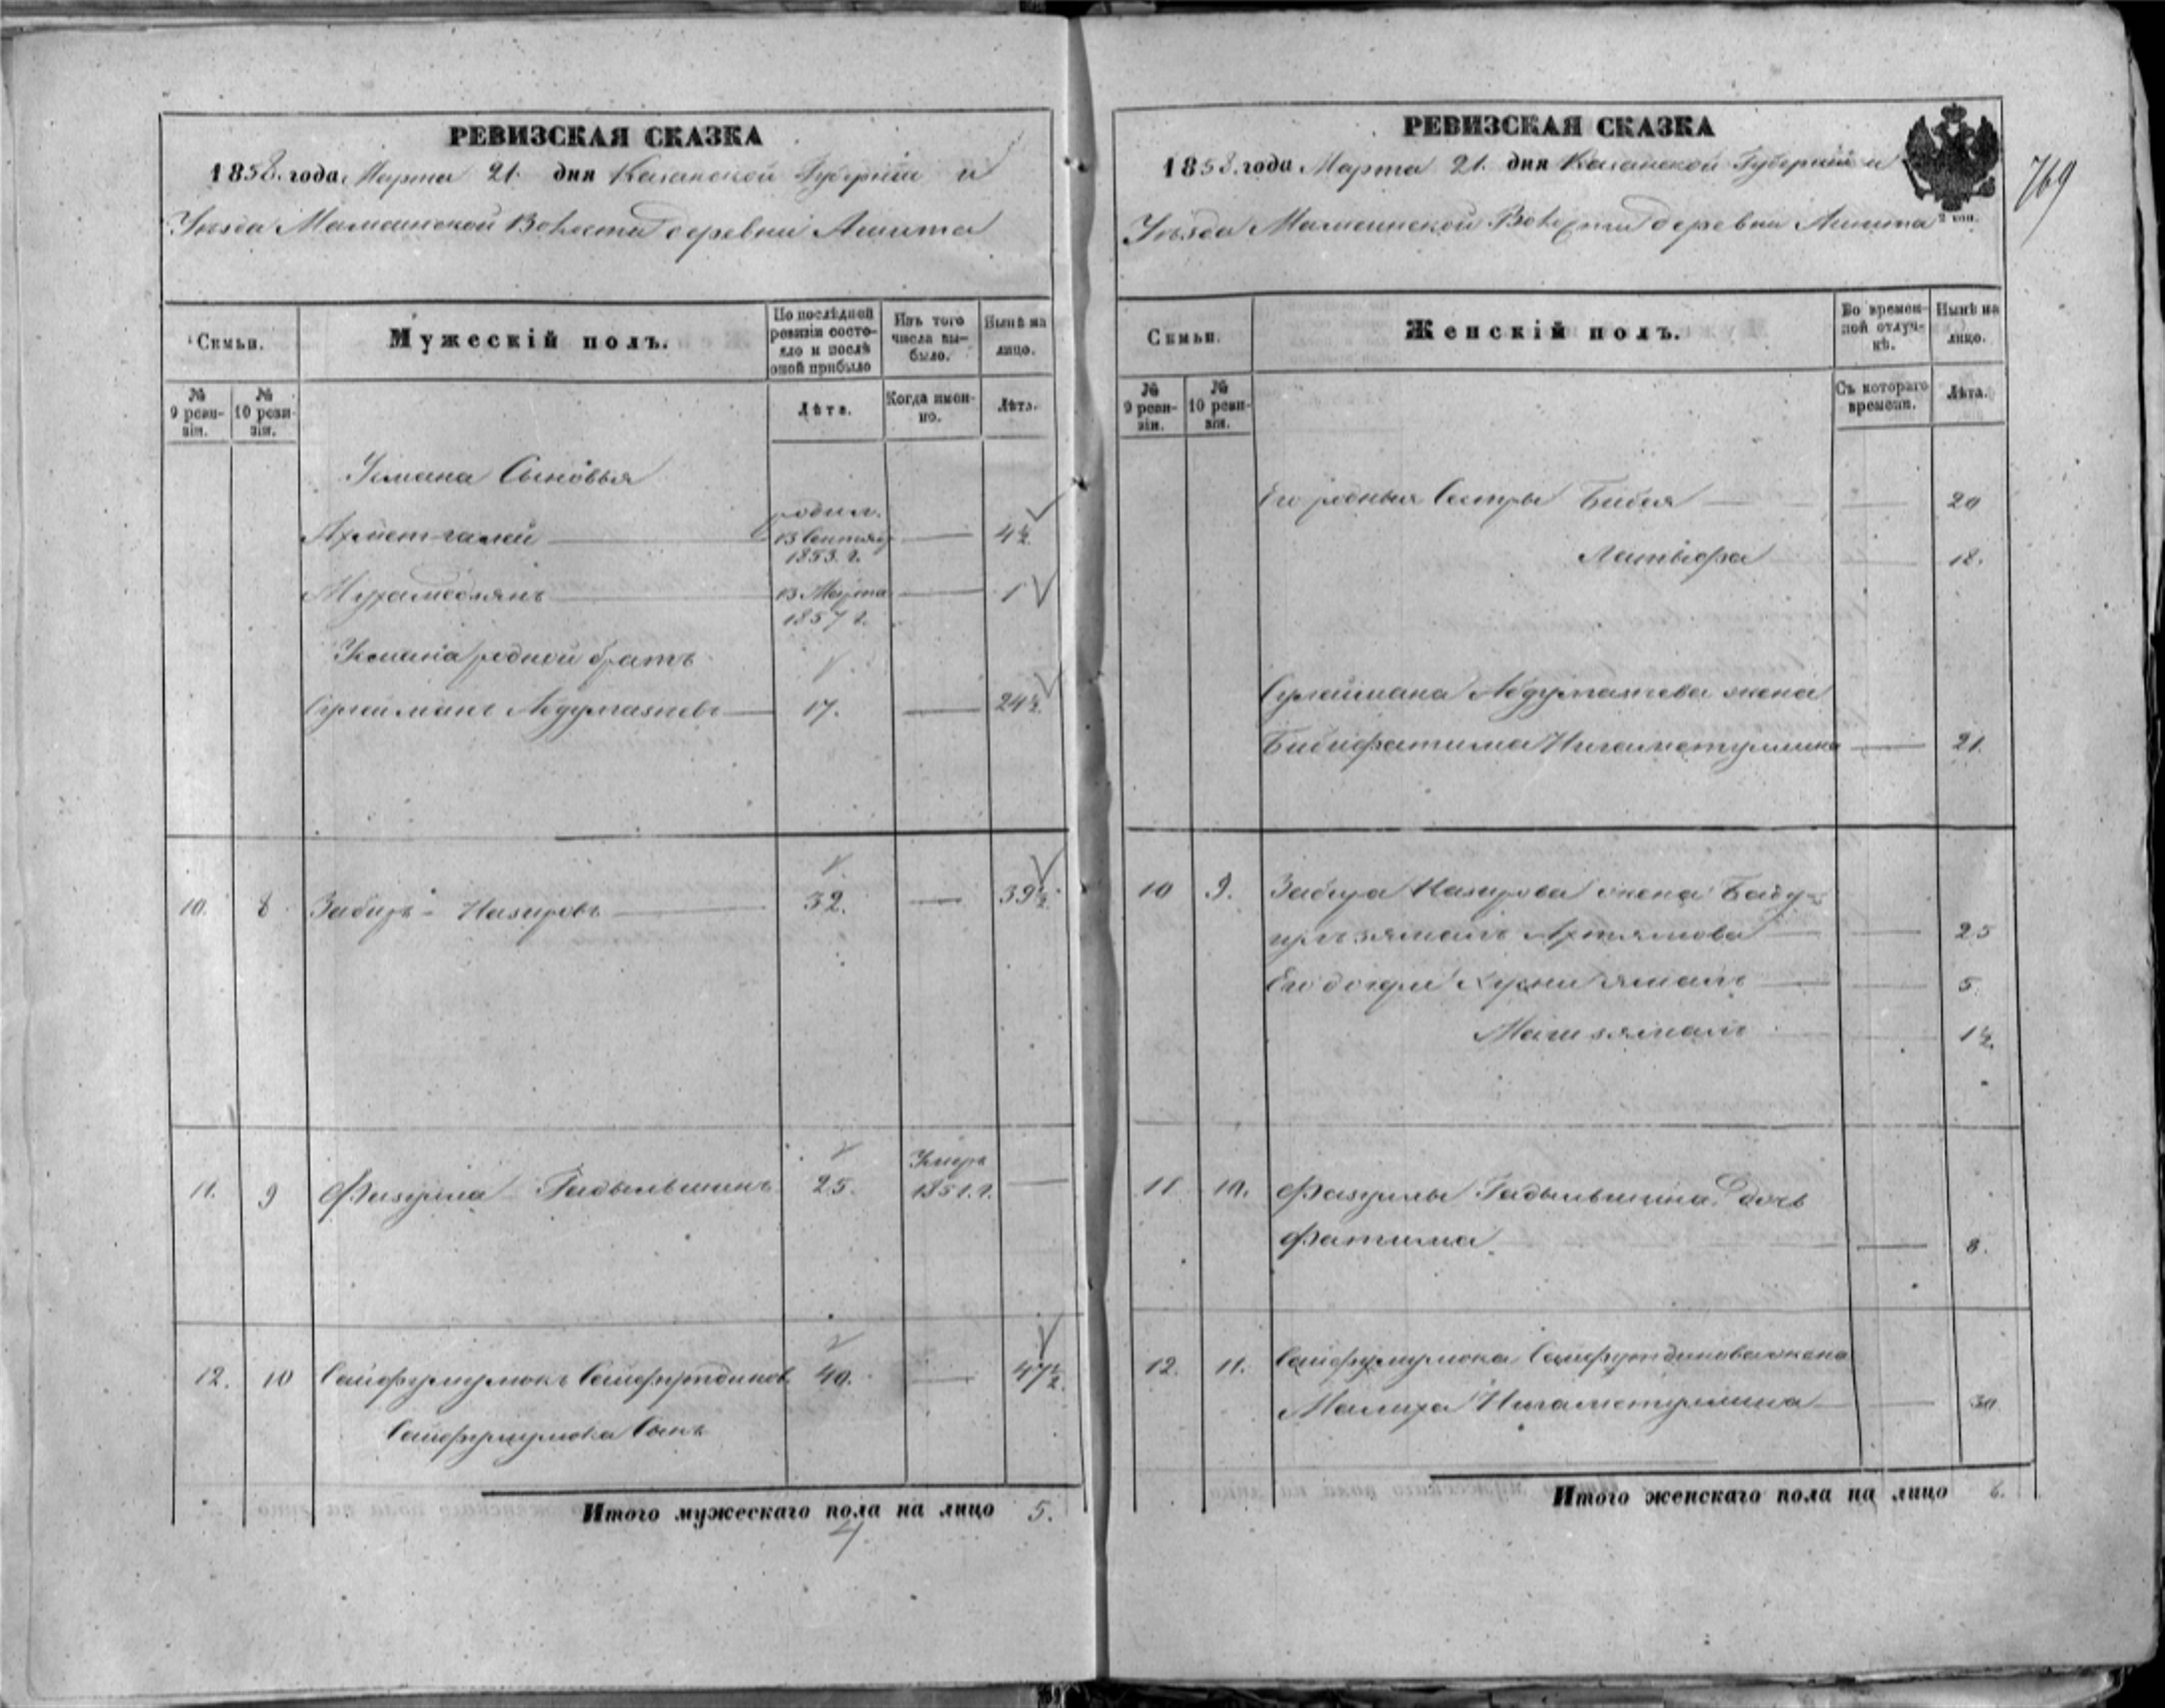 РЕВИЗСКАЯ СКАЗКА
1858. года Марта 21. дня Казанской Губернiи и
Уѣзда Мамсинской Волости деревни Ашита
Семьи.
Мужескiй полъ.
По послѣдней ревизiи состояло и послѣ оной прибыло
Изъ того числа выбыло.
Нынѣ на лицо.
№ 9 ревизiи.
№ 10 ревизiи.
Лѣта.
Когда именно.
Лѣта.
Усмана Сыновья
Ахметгалей родил. 13 Сентября 1853. г. — 4½
Мухамедзянъ 13 Марта 1857 г. — 1
Усмана родной братъ
Сулейманъ Абдулгазиевъ 17. — 24½.
10. 8 Забиръ Назировъ 32. — 39½.
11. 9 Фазулла Гадыльшинъ 25. Умеръ 1851. г. —
12. 10 Сайфулмулюкъ Сайфутдиновъ 40. — 47½.
Сайфулмулюка Сынъ
Итого мужескаго пола на лицо 5.
4
РЕВИЗСКАЯ СКАЗКА
1858. года Марта 21. дня Казанской Губернiи и
Уѣзда Мамсинской Волости деревни Ашита
2 коп.
769
Семьи.
Женскiй полъ.
Во временной отлучкѣ.
Нынѣ на лицо.
№ 9 ревизiи.
№ 10 ревизiи.
Съ котораго времени.
Лѣта.
Его родныя Сестры Бибея — 20
Латыфа — 18.
Сулеймана Абдулгазиева жена
Бибифатима Нигаметуллина — 21.
10 9. Забира Назирова жена Баду-
Ахтямова — 25
Его дочери — 5.
— 1½.
11 10. Фазуллы Гадыльшина дочь
Фатима — 8.
12. 11. Сайфулмулюка Сайфутдинова жена
Малиха Нигаметуллина — 30
Итого женскаго пола на лицо 8.